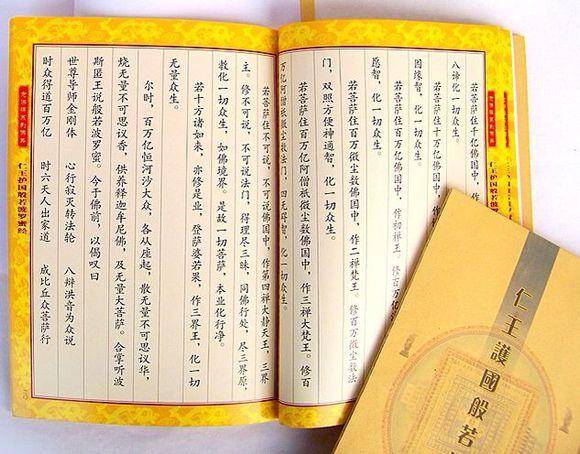 仁王护国般若波罗
若菩萨住千亿佛国中,作
八谛化一切众生。
若菩萨住十万亿佛国中,作
因缘智,化一切众生。
若菩萨住百万亿佛国中,作初禅王。修百万亿
愿智,化一切众生。
若菩萨住百万微尘数佛国中,作二禅梵王。修百万微尘数法
门,双照方便神通智,化一切众生。
若菩萨住百万亿阿僧祇微尘数佛国中,作三禅大梵王。修百
万亿阿僧祇微尘数法门,四无碍智,化一切众生。
若菩萨住不可说、不可说佛国中,作第四禅大静天王,三界
主。修不可说、不可说法门,得理尽三昧,同佛行处,尽三界原,
教化一切众生,如佛境界。是故一切菩萨,本业化行净。
若十方诸如来,亦修是业,登萨婆若果,作三界王,化一切
无量众生。
尔时,百万亿恒河沙大众,各从座起,散无量不可思议华,
烧无量不可思议香,供养释迦牟尼佛,及无量大菩萨。合掌听波
斯匿王说般若波罗蜜。今于佛前,以偈叹曰
世尊导师金刚体 心行寂灭转法轮 八辩洪音为众说
时众得道百万亿 时六天人出家道 成比丘众菩萨行
仁王护国般若波罗蜜经
仁王護國般若